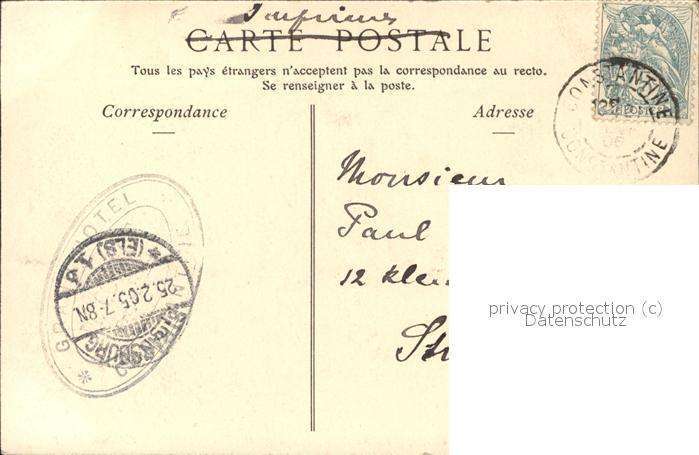 Imprimé
CARTE POSTALE
Tous les pays étrangers n'acceptent pas la correspondance au recto.
Se renseigner à la poste.
Correspondance
Adresse
CONSTANTINE
CONSTANTINE
POSTE
HOTEL
(ELS)
25.2.05.7-8N.
Monsieur
Paul
12
privacy protection (c)
Datenschutz